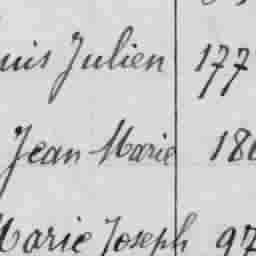 uis Julien 177
Jean Marie 186
Marie Joseph 97